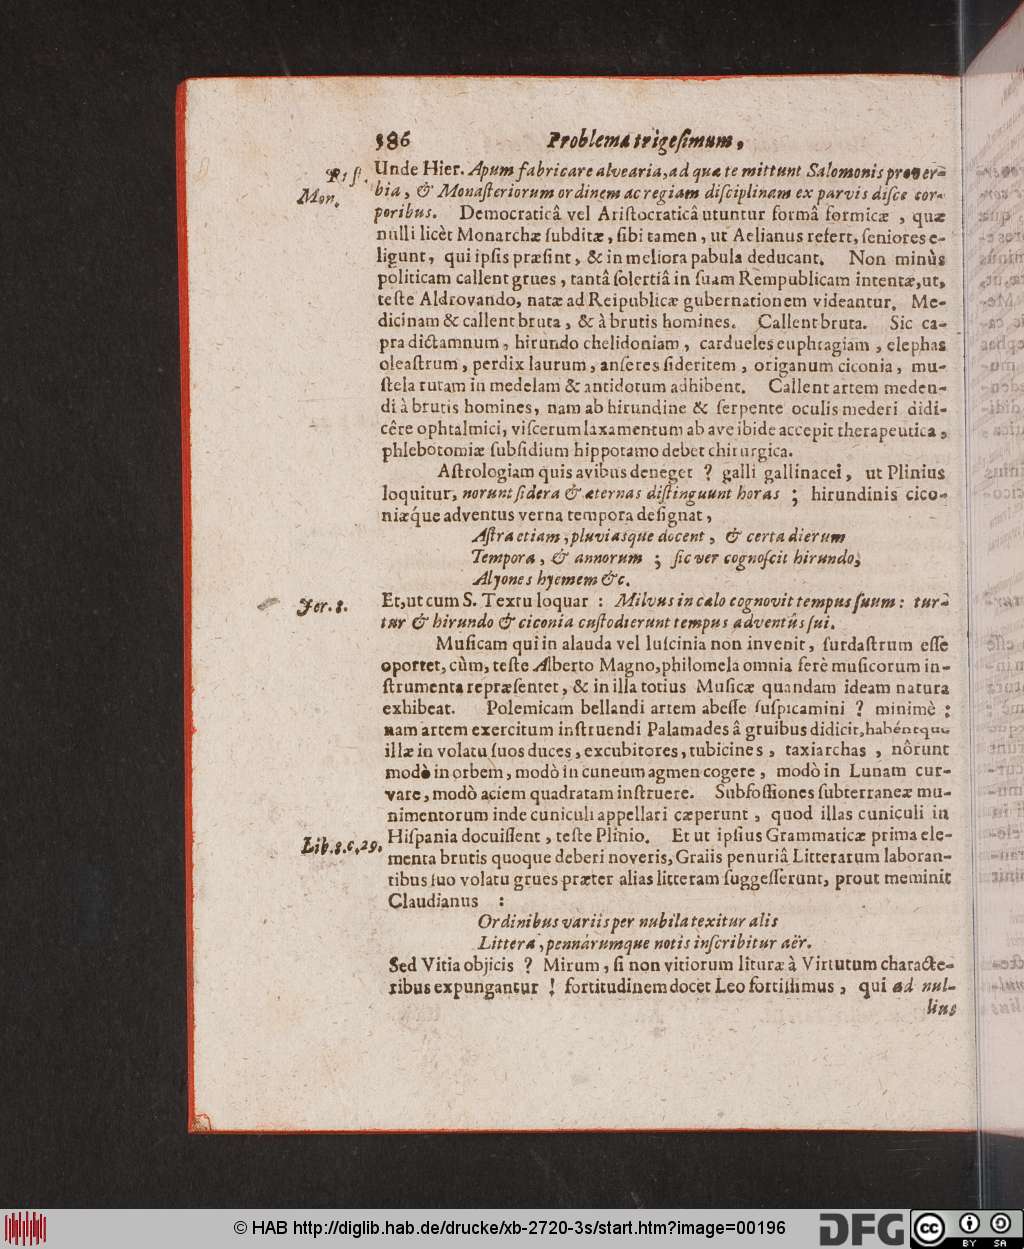 386
Problema trigeſimum,
Unde Hier. Apum fabricare alvearia, ad quæ te mittunt Salomonis prover-
Mon.
bia, & Monaſteriorum ordinem ac regiam diſciplinam ex parvis diſce cor-
poribus. Democraticâ vel Ariſtocraticâ utuntur formâ formicæ, quæ
nulli licèt Monarchæ ſubditæ, ſibi tamen, ut Aelianus refert, ſeniores e-
ligunt, qui ipſis præſint, & in meliora pabula deducant. Non minùs
politicam callent grues, tantâ ſolertiâ in ſuam Rempublicam intentæ, ut,
teſte Aldrovando, natæ ad Reipublicæ gubernationem videantur. Me-
dicinam & callent bruta, & à brutis homines. Callent bruta. Sic ca-
pra dictamnum, hirundo chelidoniam, cardueles euphragiam, elephas
oleaſtrum, perdix laurum, anſeres ſideritem, origanum ciconia, mu-
ſtela rutam in medelam & antidotum adhibent. Callent artem meden-
di à brutis homines, nam ab hirundine & ſerpente oculis mederi didi-
cêre ophtalmici, viſcerum laxamentum ab ave ibide accepit therapeutica,
phlebotomiæ ſubſidium hippotamo debet chirurgica.
Aſtrologiam quis avibus deneget ? galli gallinacei, ut Plinius
loquitur, norunt ſidera & æternas diſtinguunt horas ; hirundinis cico-
niæq́ue adventus verna tempora deſignat,
Aſtra etiam, pluviasque docent, & certa dierum
Tempora, & annorum ; ſic ver cognoſcit hirundo,
Alyones hyemem &c.
Jer. 8.
Et, ut cum S. Textu loquar : Milvus in cælo cognovit tempus ſuum : tur-
tur & hirundo & ciconia cuſtodierunt tempus adventûs ſui.
Muſicam qui in alauda vel luſcinia non invenit, ſurdaſtrum eſſe
oportet, cùm, teſte Alberto Magno, philomela omnia ferè muſicorum in-
ſtrumenta repræſentet, & in illa totius Muſicæ quandam ideam natura
exhibeat. Polemicam bellandi artem abeſſe ſuſpicamini ? minimè :
nam artem exercitum inſtruendi Palamades â gruibus didicit, habéntque
illæ in volatu ſuos duces, excubitores, tubicines, taxiarchas, nôrunt
modò in orbem, modò in cuneum agmen cogere, modò in Lunam cur-
vare, modò aciem quadratam inſtruere. Subfoſſiones ſubterraneæ mu-
nimentorum inde cuniculi appellari cæperunt, quod illas cuniculi in
Lib. 8. c. 29.
Hiſpania docuiſſent, teſte Plinio. Et ut ipſius Grammaticæ prima ele-
menta brutis quoque deberi noveris, Graiis penuriâ Litterarum laboran-
tibus ſuo volatu grues præter alias litteram ſuggeſſerunt, prout meminit
Claudianus :
Ordinibus variis per nubila texitur alis
Littera, pennarumque notis inſcribitur aër.
Sed Vitia objicis ? Mirum, ſi non vitiorum lituræ à Virtutum characte-
ribus expungantur ! fortitudinem docet Leo fortiſſimus, qui ad nul-
lius
© HAB http://diglib.hab.de/drucke/xb-2720-3s/start.htm?image=00196
DFG
cc
BY SA